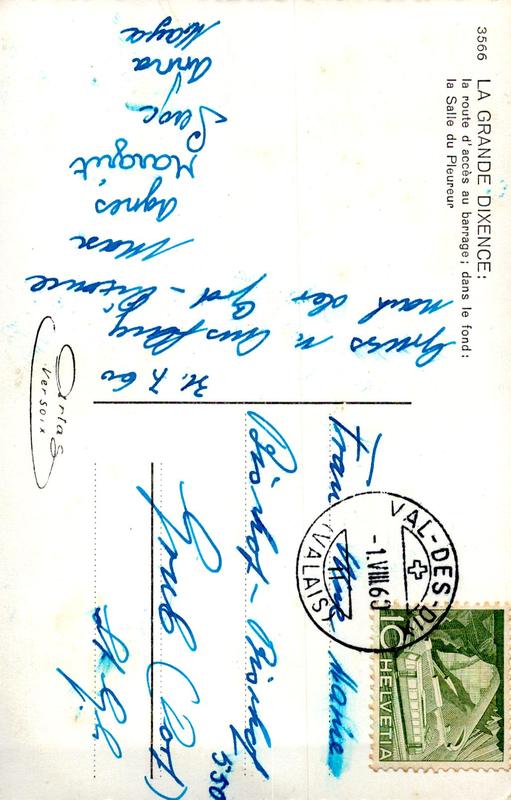 3566 LA GRANDE DIXENCE:
la route d'accès au barrage; dans le fond:
la Salle du Pleureur
31. 7. 60
Gruss v. Ausflug
nach der Grd-Dixence
Max
Agnes
Margrit
Serge
Anna
Maya
Perlas
Versoix
Frau Marie
Grub (Dorf)
St. Glln
550
VAL-DES-DIX
-1.VIII.60
(VALAIS)
10
HELVETIA